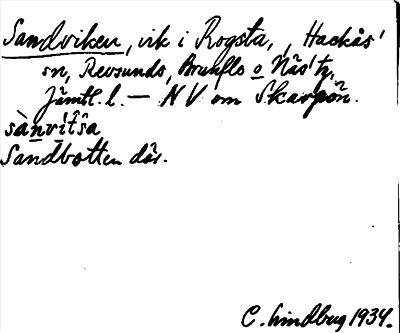 Sandviken, vik i Rogsta, Hackås'
sn, Revsunds, Brunflo o Näs' tg,
Jämtl. l. — NV om Skarpön.
sànvít̂s̀a
Sandbotten där.
C. Lindberg 1934.